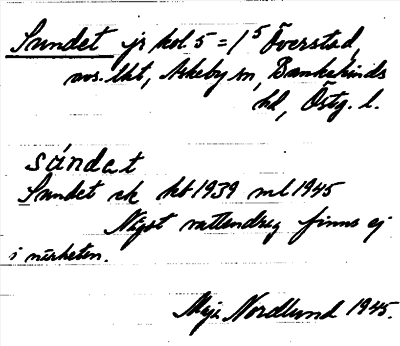 Sundet jr kol 5 = 1⁵ Överstad,
avs. lht, Askeby sn, Bankekinds
hd, Östg. l.
sándat
Sundet ek hb 1939 ml 1945
Något vattendrag finns ej
i närheten.
Maja Nordlund 1945.